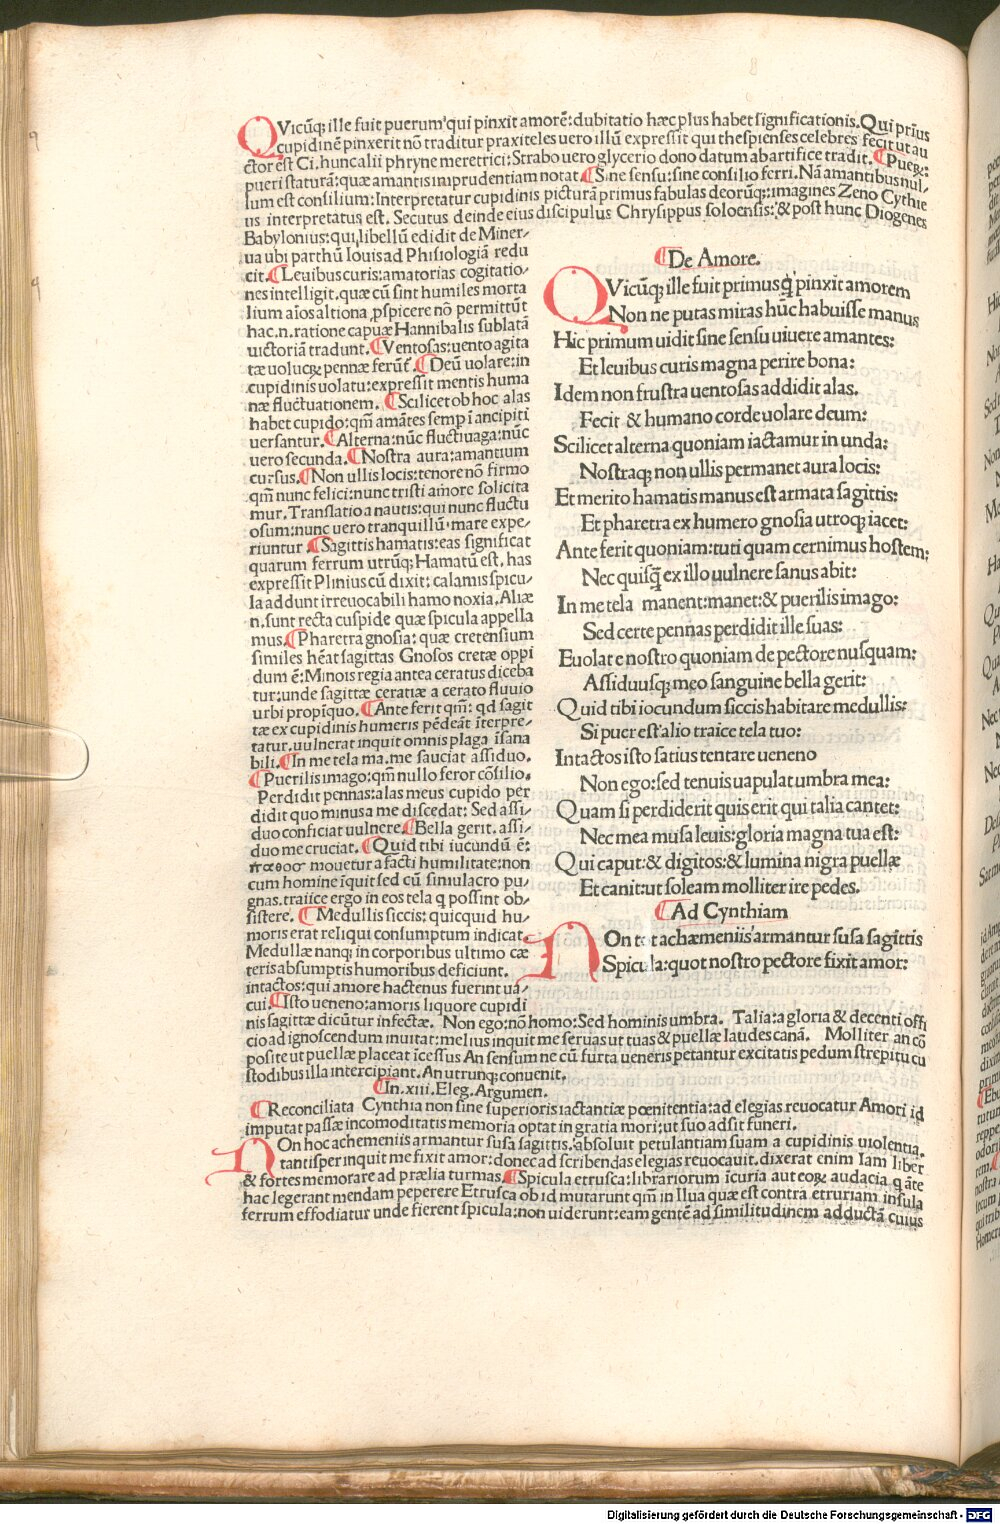 QVicūq; ille fuit puerum'qui pinxit amorē: dubitatio hæc plus habet significationis. Qui prius
cupidinē pinxerit nō traditur praxiteles uero illū expressit qui thespienses celebres fecit ut au
ctor est Ci. hunc alii phryne meretrici: Strabo uero glycerio dono datum ab artifice tradit. ¶Pueꝝ:
pueri staturā: quæ amantis imprudentiam notat. ¶Sine sensu: sine consilio ferri. Nā amantibus nul/
lum est consilium: Interpretatur cupidinis picturā primus fabulas deorūq; imagines Zeno Cythie
us interpretatus est. Secutus deinde eius discipulus Chrysippus soloensis: & post hunc Diogenes
Babylonius: qui, libellū edidit de Miner/
ua ubi parthū Iouis ad Phisiologiā redu
cit. ¶Leuibus curis: amatorias cogitatio/
nes intelligit. quæ cū sint humiles morta
lium aīos altiona, pspicere nō permittūt
hac. n. ratione capuæ Hannibalis sublatā
uictoriā tradunt. ¶Ventosas: uento agita
tæ uolucꝝ pennæ ferūt. ¶Deū uolare: in
cupidinis uolatu: expressit mentis huma
næ fluctuationem. ¶Scilicet ob hoc alas
habet cupido: qm̄ amātes semp ī ancipiti
uersantur. ¶Alterna: nūc fluctiuaga: nūc
uero secunda. ¶Nostra aura: amantium
cursus. ¶Non ullis locis: tenore nō firmo
qm̄ nunc felici: nunc tristi amore solicita
mur. Translatio a nautis: qui nunc fluctu
osum: nunc uero tranquillū mare expe/
riuntur. ¶Sagittis hamatis: eas significat
quarum ferrum utrūq; Hamatū est. has
expressit Plinius cū dixit: calamis spicu/
la addunt irreuocabili hamo noxia. Aliæ
n. sunt recta cuspide quæ spicula appella
mus. ¶Pharetra gnosia: quæ cretensium
similes hēat sagittas Gnosos cretæ oppi
dum ē: Minois regia antea ceratus diceba
tur: unde sagittæ ceratiæ a cerato fluuio
urbi propīquo. ¶Ante ferit qm̄: qd sagit
tæ ex cupidinis humeris pēdeāt īterpre/
tatur. uulnerat inquit omnis plaga īsana
bili. ¶In me tela ma. me sauciat assiduo.
¶Puerilis imago: qm̄ nullo feror cōsilio.
Perdidit pennas: alas meus cupido per
didit quo minus a me discedat: Sed assi/
duo conficiat uulnere. ¶Bella gerit. assi/
duo me cruciat. ¶Quid tibi iucundū ē:
παθοσ mouetur a facti humilitate: non
cum homine īquit sed cū simulacro pu/
gnas. traiice ergo in eos tela q possint ob/
sistere. ¶Medullis siccis: quicquid hu/
moris erat reliqui consumptum indicat.
Medullæ nanq; in corporibus ultimo cæ
teris absumptis humoribus deficiunt.
intactos: qui amore hactenus fuerint ua/
cui. ¶Isto ueneno: amoris liquore cupidi
nis sagittæ dicūtur infectæ. Non ego: nō homo: Sed hominis umbra. Talia: a gloria & decenti offi
cio ad ignoscendum inuitat: melius inquit me seruas ut tuas & puellæ laudes canā. Molliter an cō
posite ut puellæ placeat īcessus An sensum ne cū furta ueneris petantur excitatis pedum strepitu cu
stodibus illa intercipiant. An utrunq; conuenit.
¶De Amore.
QVicūq; ille fuit primus q̄ pinxit amorem
Non ne putas miras hūc habuisse manus
Hic primum uidit sine sensu uiuere amantes:
Et leuibus curis magna perire bona:
Idem non frustra uentosas addidit alas.
Fecit & humano corde uolare deum:
Scilicet alterna quoniam iactamur in unda:
Nostraq; non ullis permanet aura locis:
Et merito hamatis manus est armata sagittis:
Et pharetra ex humero gnosia utroq; iacet:
Ante ferit quoniam: tuti quam cernimus hostem:
Nec quisq̄ ex illo uulnere sanus abit:
In me tela manent: manet: & puerilis imago:
Sed certe pennas perdidit ille suas:
Euolat e nostro quoniam de pectore nusquam:
Assiduusq; meo sanguine bella gerit:
Quid tibi iocundum siccis habitare medullis:
Si puer est'alio traice tela tuo:
Intactos isto satius tentare ueneno
Non ego: sed tenuis uapulat umbra mea:
Quam si perdiderit quis erit qui talia cantet:
Nec mea musa leuis: gloria magna tua est:
Qui caput: & digitos: & lumina nigra puellæ
Et canit ut soleam molliter ire pedes.
¶Ad Cynthiam
NOn tot achæmeniis'armantur susa sagittis
Spicula: quot nostro pectore fixit amor:
¶In. xiii. Eleg. Argumen.
¶Reconciliata Cynthia non sine superioris iactantiæ pœnitentia: ad elegias reuocatur Amori id
imputat passæ incomoditatis memoria optat in gratia mori; ut suo adsit funeri.
NOn hoc achemeniis armantur susa sagittis. absoluit petulantiam suam a cupidinis uiolentia.
tantisper inquit me fixit amor: donec ad scribendas elegias reuocauit. dixerat enim Iam liber
& fortes memorare ad prælia turmas. ¶Spicula etrusca: librariorum īcuria aut eoꝝ audacia q āte
hac legerant mendam peperere Etrusca ob id mutarunt qm̄ in Ilua quæ est contra etruriam insula
ferrum effodiatur unde fierent spicula: non uiderunt: eam gentē ad similitudinem adductā cuius
Digitalisierung gefördert durch die Deutsche Forschungsgemeinschaft - DFG